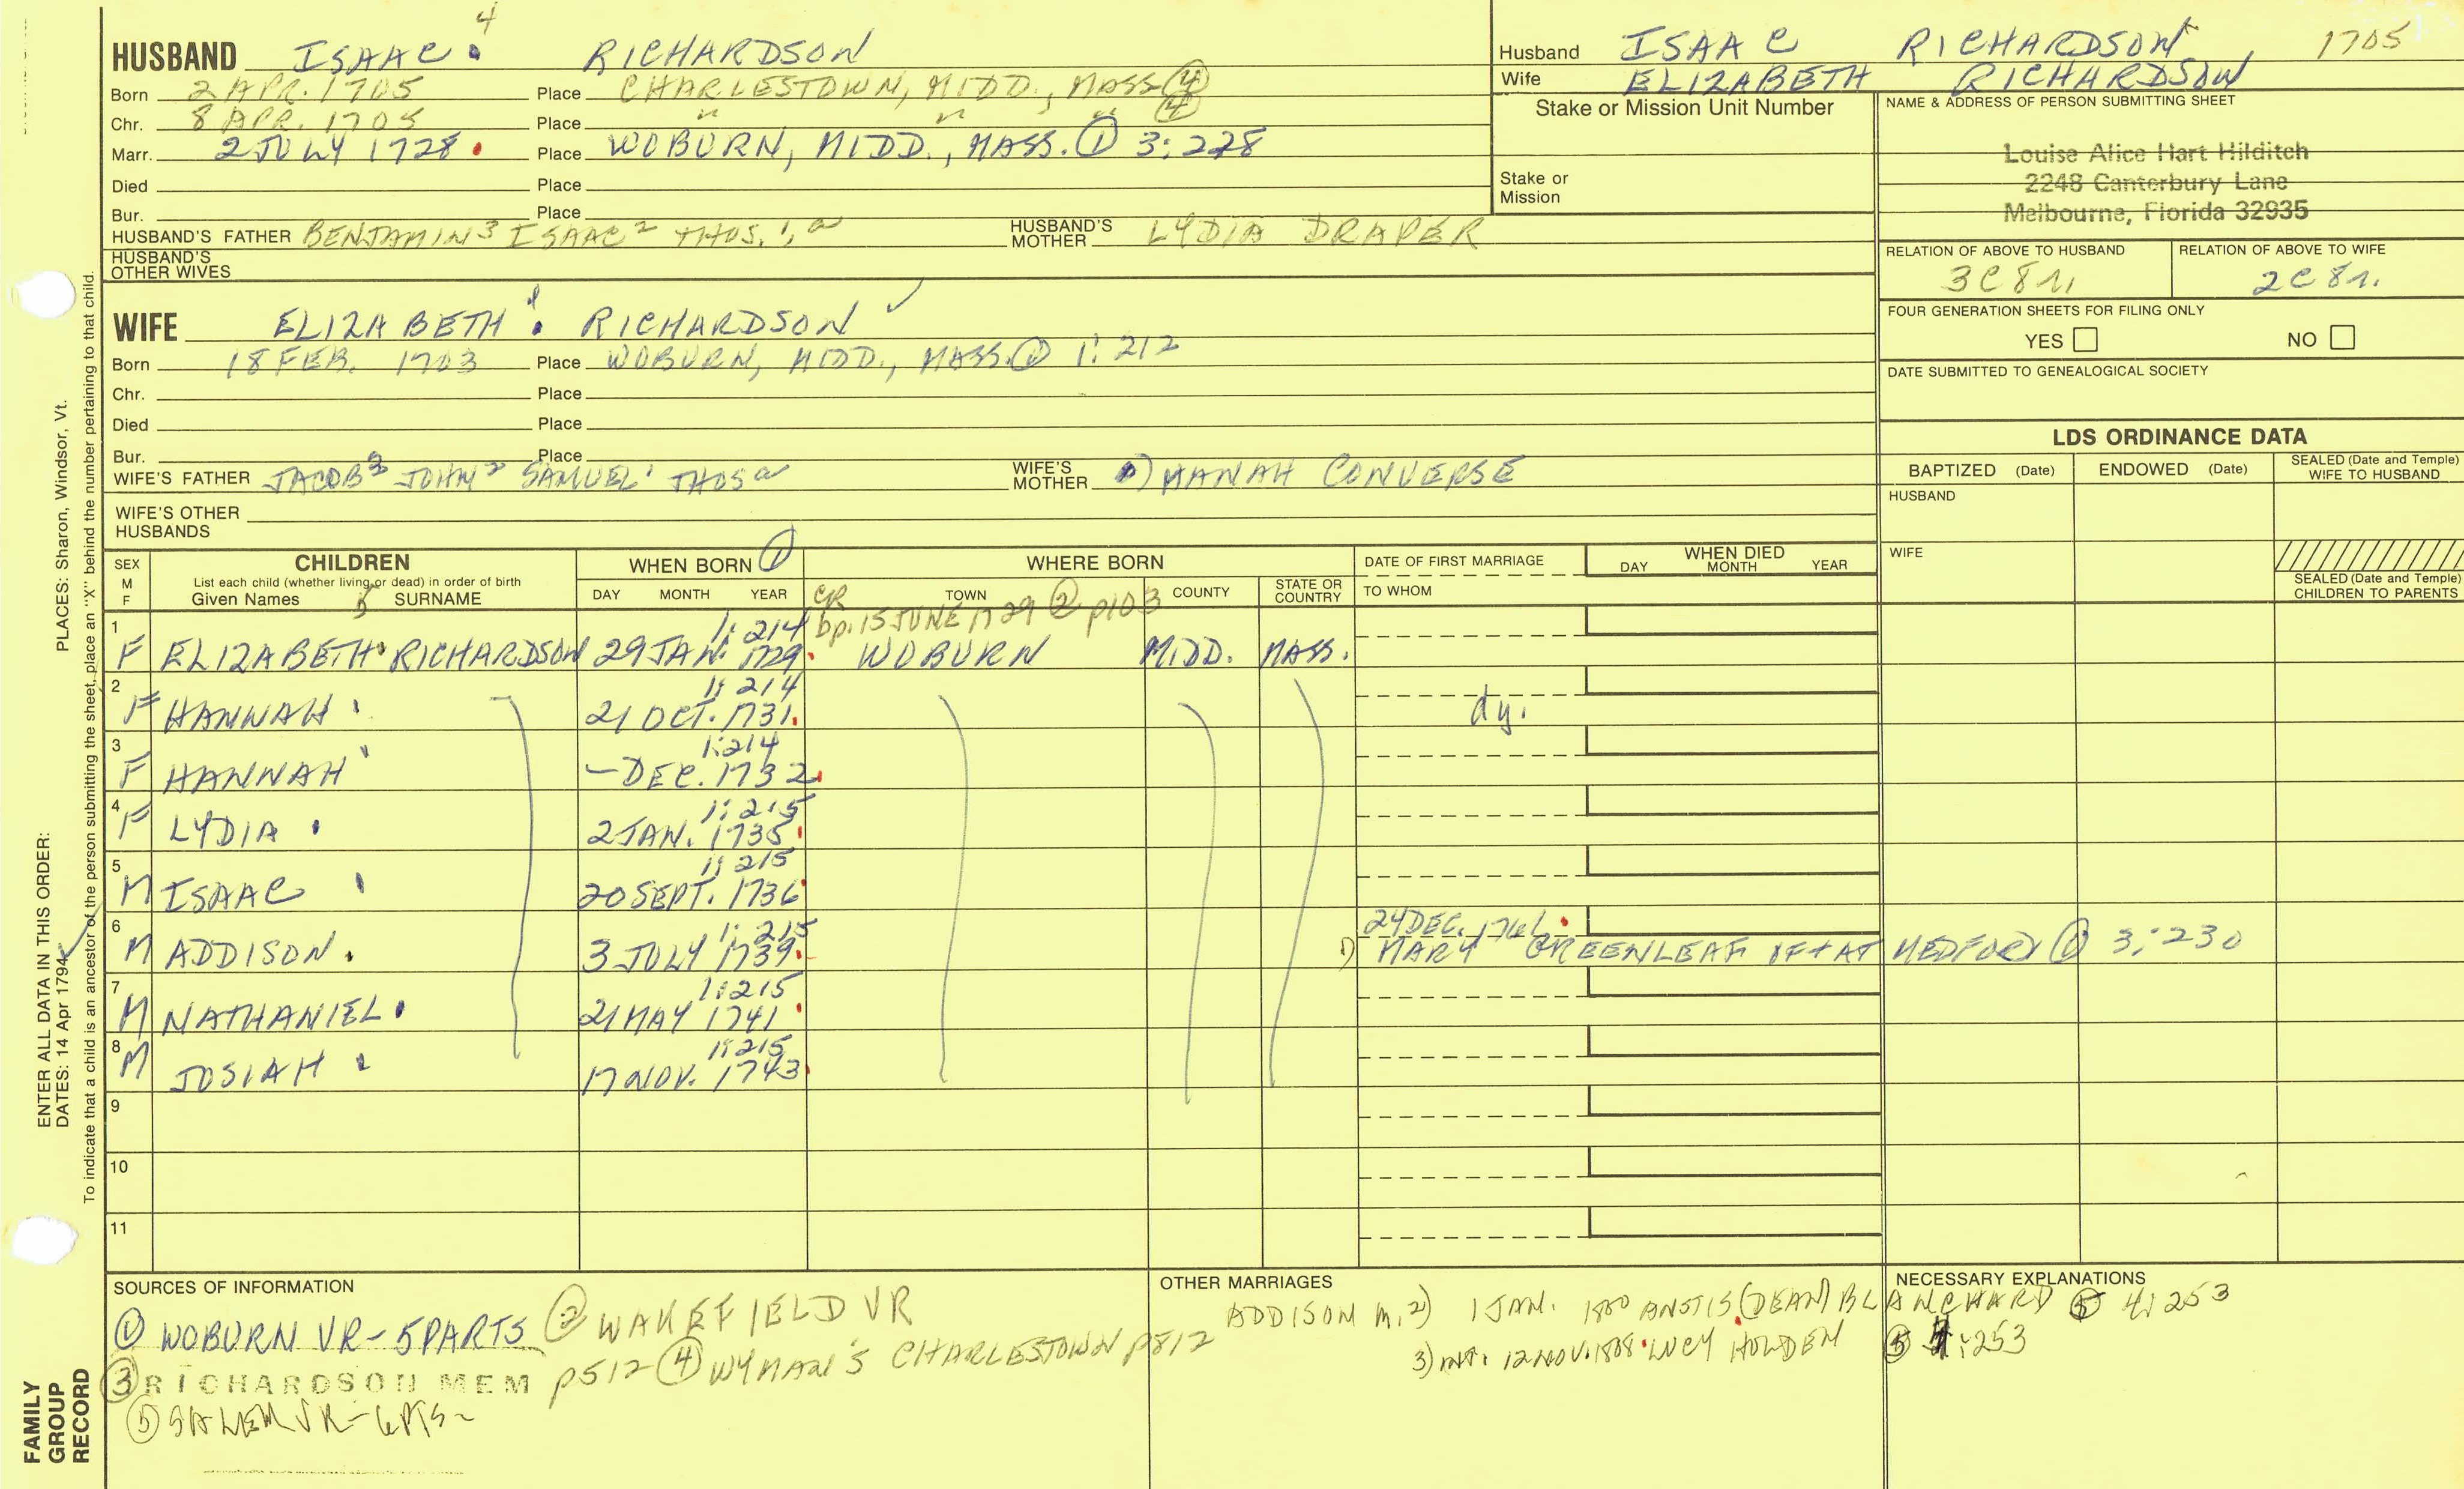 4
HUSBAND ISAAC RICHARDSON
Born 2 APR. 1705 Place CHARLESTOWN, MIDD., MASS ④
Chr. 8 APR. 1705 Place " " " ④
Marr. 2 JULY 1728 Place WOBURN, MIDD., MASS. ① 3:228
Died Place
Bur. Place
HUSBAND'S FATHER BENJAMIN3 ISAAC2 THOS.1,a HUSBAND'S MOTHER LYDIA DRAPER
HUSBAND'S OTHER WIVES
WIFE ELIZABETH RICHARDSON ✓
Born 18 FEB. 1703 Place WOBURN, MIDD., MASS. ① 1:212
Chr. Place
Died Place
Bur. Place
WIFE'S FATHER JACOB3 JOHN2 SAMUEL1 THOSa WIFE'S MOTHER HANAH CONVERSE
WIFE'S OTHER HUSBANDS
Husband ISAAC RICHARDSON 1705
Wife ELIZABETH RICHARDSON
Stake or Mission Unit Number
Stake or Mission
NAME & ADDRESS OF PERSON SUBMITTING SHEET
Louise Alice Hart Hilditch
2248 Canterbury Lane
Melbourne, Florida 32935
RELATION OF ABOVE TO HUSBAND RELATION OF ABOVE TO WIFE
3C8r. 2C8r.
FOUR GENERATION SHEETS FOR FILING ONLY
YES NO
DATE SUBMITTED TO GENEALOGICAL SOCIETY
LDS ORDINANCE DATA
BAPTIZED (Date) ENDOWED (Date) SEALED (Date and Temple) WIFE TO HUSBAND
HUSBAND
WIFE
SEALED (Date and Temple) CHILDREN TO PARENTS
SEX M F
CHILDREN
List each child (whether living or dead) in order of birth
Given Names SURNAME
WHEN BORN ①
DAY MONTH YEAR
WHERE BORN
TOWN COUNTY STATE OR COUNTRY
DATE OF FIRST MARRIAGE
TO WHOM
WHEN DIED
DAY MONTH YEAR
CR bp. 15 JUNE 1729 ② p103
1:214
1 F ELIZABETH RICHARDSON 29 JAN. 1729 WOBURN MIDD. MASS.
1:214
2 F HANNAH 21 OCT. 1731 dy.
1:214
3 F HANNAH – DEC. 1732
1:215
4 F LYDIA 2 JAN. 1735
1:215
5 M ISAAC 20 SEPT. 1736
1:215 24 DEC. 1761
6 M ADDISON 3 JULY 1739 1) MARY GREENLEAF OF + AT MEDFORD ① 3:230
1:215
7 M NATHANIEL 21 MAY 1741
1:215
8 M JOSIAH 17 NOV. 1743
9
10
11
SOURCES OF INFORMATION
① WOBURN VR – 5 PARTS ② WAKEFIELD VR
③ RICHARDSON MEM p512 ④ WYMAN'S CHARLESTOWN p812
⑤ SALEM VR – 6 PTS
OTHER MARRIAGES
NECESSARY EXPLANATIONS
ADDISON m. 2) 1 JAN. 1800 ANSTIS (DEAN) BLANCHARD ⑤ 4:253
3) int. 12 NOV. 1808 LUCY HOLDEN ⑤ 4:253
ENTER ALL DATA IN THIS ORDER:
DATES: 14 Apr 1794 PLACES: Sharon, Windsor, Vt.
To indicate that a child is an ancestor of the person submitting the sheet, place an "X" behind the number pertaining to that child.
FAMILY GROUP RECORD